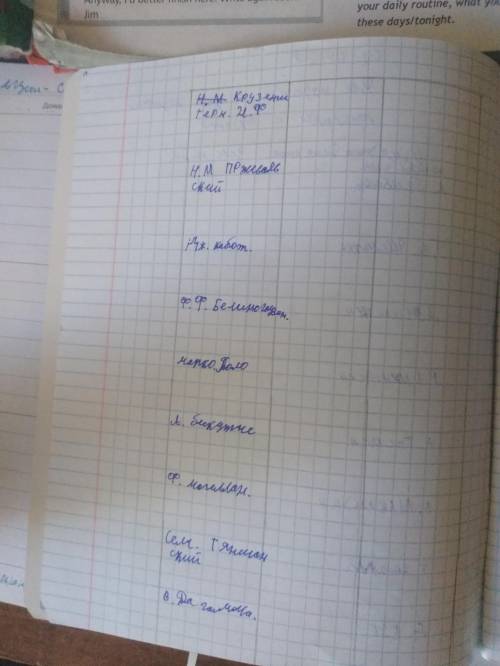 Anyway, I'd better finish here. Write again soon.
Jim
your daily routine, what you
these days/tonight.
Н. М Крузенш
терн. И.Ф
Н.М Пржеваль
ский
Дж. кабот.
Ф.Ф. Белинсгаузен.
марко Поло
Ф. магеллан.
Сем. Тяншан
ский
в. Да гамма.